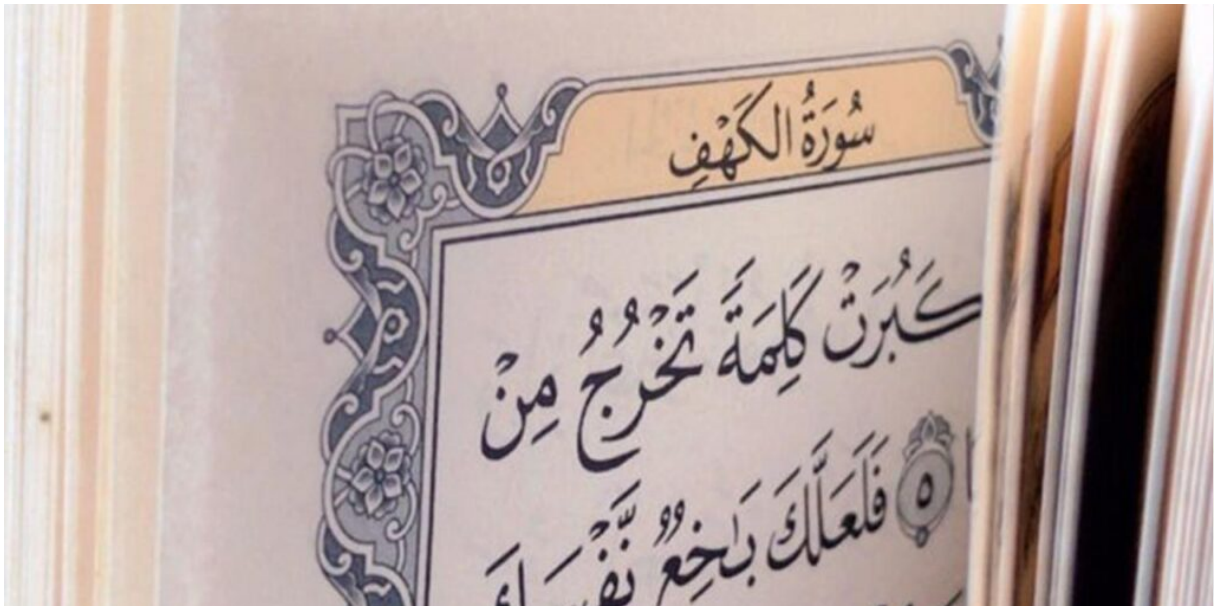 سُورَةُ الكَهْفِ
كَبُرَتْ كَلِمَةً تَخْرُجُ مِنْ
۵ فَلَعَلَّكَ بَـٰخِعٌ نَّفْسَكَ